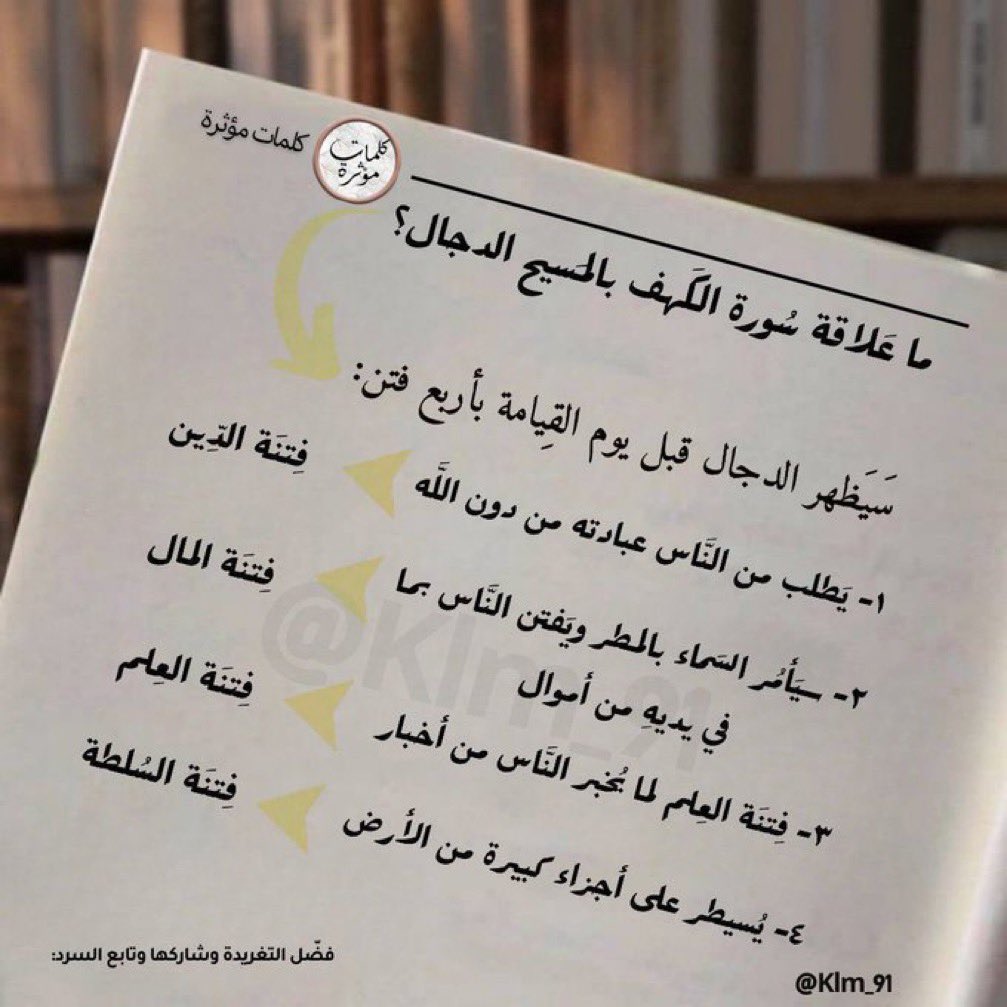 كلمات مؤثرة
كلمات
مؤثرة
ما عَلاقة سُورة الكَهف بالمَسيح الدجال؟
سَيَظهر الدجال قبل يوم القِيامة بأربع فتن:
١- يَطلب من النَّاس عبادته من دون اللَّه
فِتنَة الدِّين
٢- سيَأمُر السَماء بالمطر ويَفتن النَّاس بما
في يديهِ من أموال
فِتنَة المال
٣- فِتنَة العِلم لما يُخبر النَّاس من أخبار
فِتنَة العِلم
٤- يُسيطر على أجزاء كبيرة من الأرض
فِتنَة السُلطة
@Klm_91
فضّل التغريدة وشاركها وتابع السرد:
@Klm_91